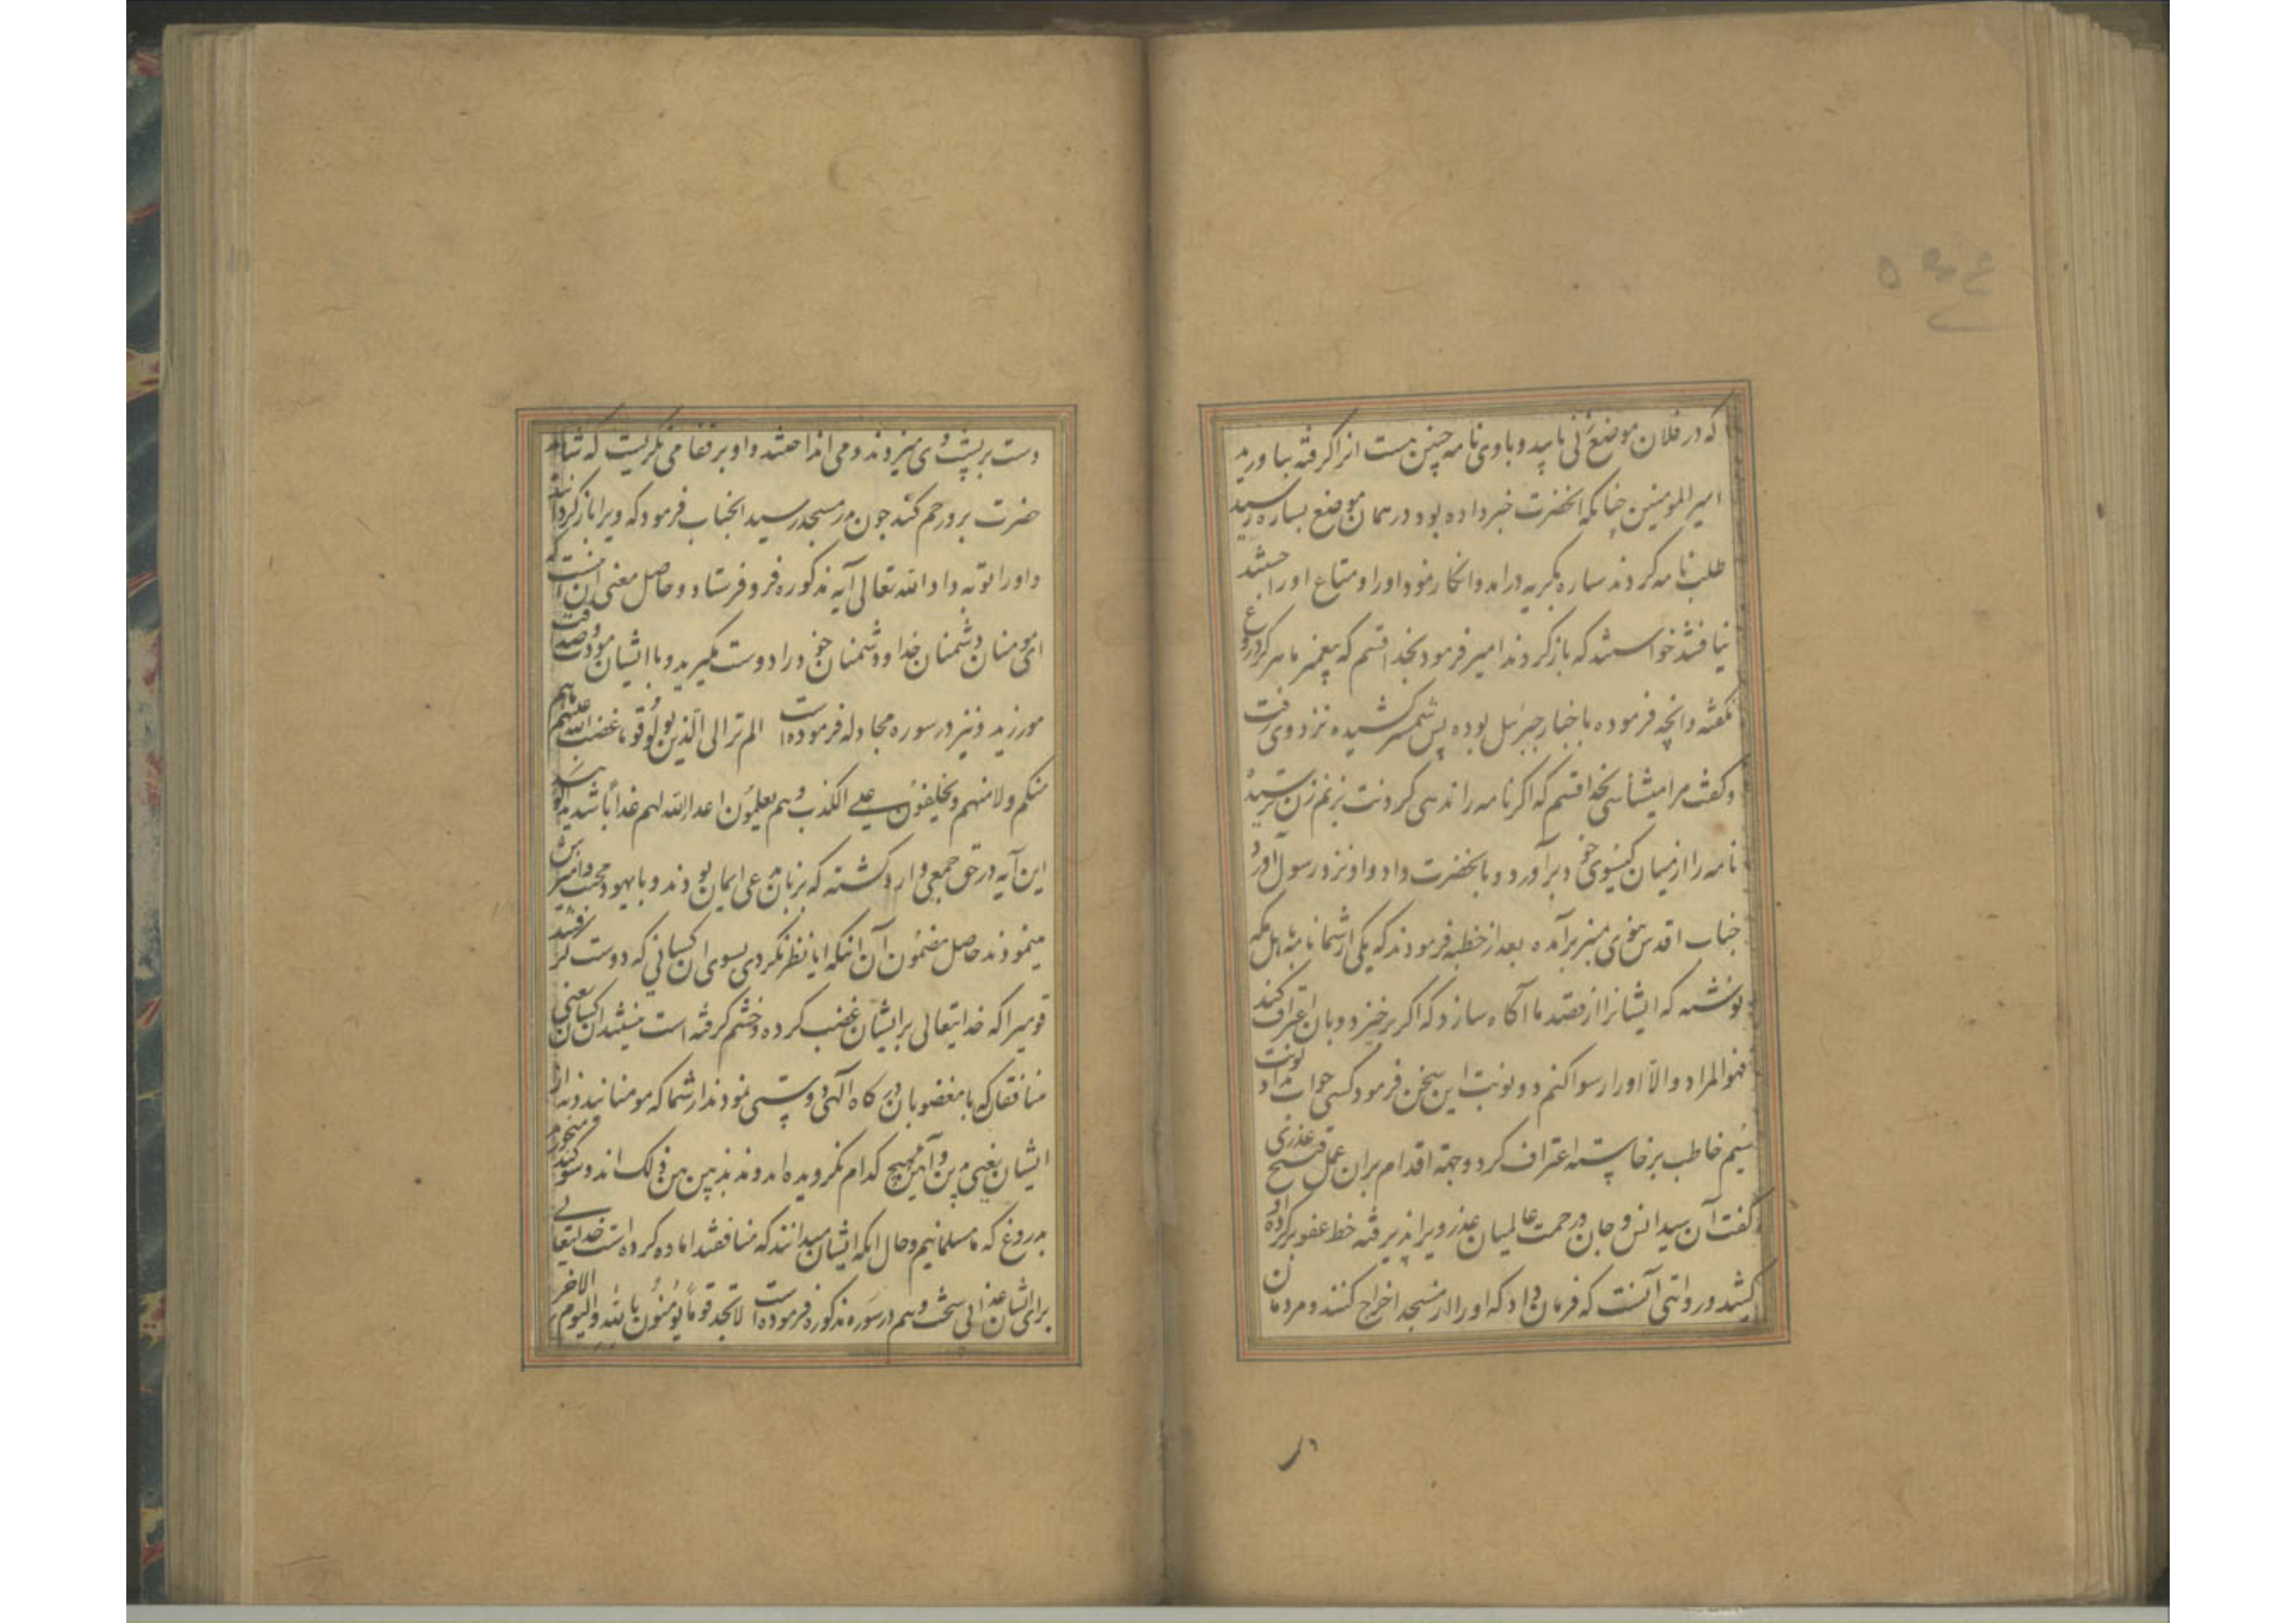 که در فلان موضع زنی یابید و با وی نامه چنین هست انرا کرفته بیاورید
امیرالمومنین چنانکه انحضرت خبر داده بود در همان موضع بساره رسید
طلب نامه کردند ساره بکریه درامد و انکار نمود او را و متاع او را جستند
نیافتند خواستند که باز کردند امیر فرمود بخدا قسم که پیغمبر ما هرکز دروغ
نکفته و انچه فرموده باخبار جبرئیل بوده پس شمشیر کشیده نزد وی رفت
و کفت مرا میشناسی بخدا قسم که اکر نامه را ندهی کردنت بزنم زن ترسیده
نامه را از میان کیسوی خود برآورد و بانحضرت داد و او نزد رسول آورد
جناب اقدس نبوی بمنبر برآمده بعد از خطبه فرمودند که یکی از شما نامه باهل مکه
نوشته که ایشانرا از قصد ما آکاه سازد که اکر برخیزد و بان اعتراف کند
فهو المراد والا او را رسوا کنم دو نوبت این سخن فرمود کسی جواب نداد نوبت
سیم خاطب برخاسته اعتراف کرد و جهة اقدام بران عمل قبیح عذری
کفت آن سید انس و جان و رحمت عالمیان عذر ویرا پذیرفته خط عفو بر کرده او
کشید و روایتی آنست که فرمان داد که او را از مسجد اخراج کنند و مردمان
دست بر پشت وی میزدند و می انداختند و او بر قفا می نکریست که شاید
حضرت برو رحم کند چون بدر مسجد رسید انجناب فرمود که ویرا باز کردانید
و او را توبه داد الله تعالی آیه مذکوره فرو فرستاد و حاصل معنی آن اینست
ای مومنان دشمنان خدا و دشمنان خود را دوست مکیرید و با ایشان مودت و صداقت
مورزید و نیز در سوره مجادله فرموده است الم تر الی الذین تولوا قوما غضب الله علیهم ما هم
منکم ولا منهم ویحلفون علی الکذب وهم یعلمون اعد الله لهم عذابا شدیدا
این آیه در حق جمعی وارد کشته که بزبان مدعی ایمان بودند و با یهود محبت و امیزش
مینمودند حاصل مضمون آن آنکه ایا نظر نکردی بسوی ان کسانی که دوست کرفتند
قومیرا که خدایتعالی بر ایشان غضب کرده و خشم کرفته است نیستند ان کسان یعنی
منافقان که با مغضوبان درکاه آلهی دوستی نمودند از شما که مومنانید و نه از
ایشان یعنی بدین و آئین هیچ کدام نکرویده اند و مذبذبین بین ذلک اند و سوکند میخورند
بدروغ که ما مسلمانیم و حال انکه ایشان میدانند که منافقند اماده کرده است خدایتعالی
برای ایشان عذابی سخت و هم در سوره مذکوره فرموده است لا تجد قوما یؤمنون بالله والیوم الاخر